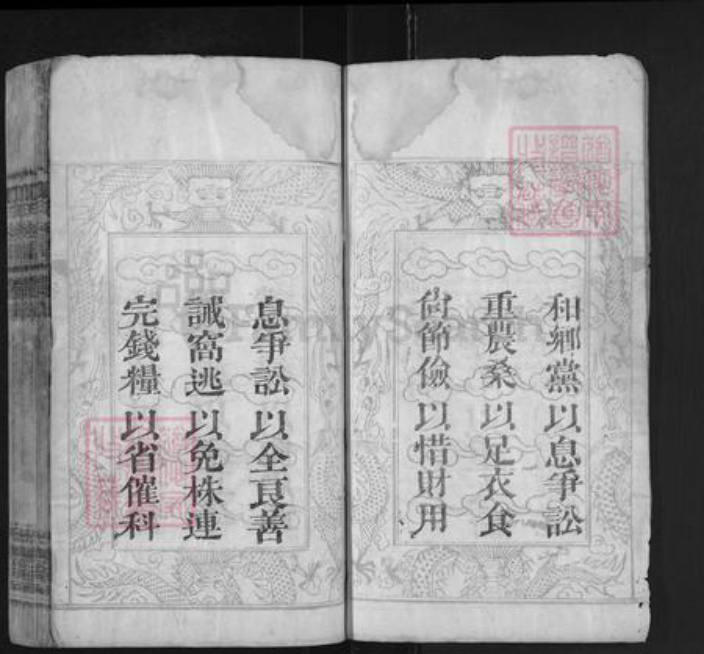 和鄉黨以息爭訟
重農桑以足衣食
尙節儉以惜財用
息爭訟以全良善
誡窩逃以免株連
完錢糧以省催科